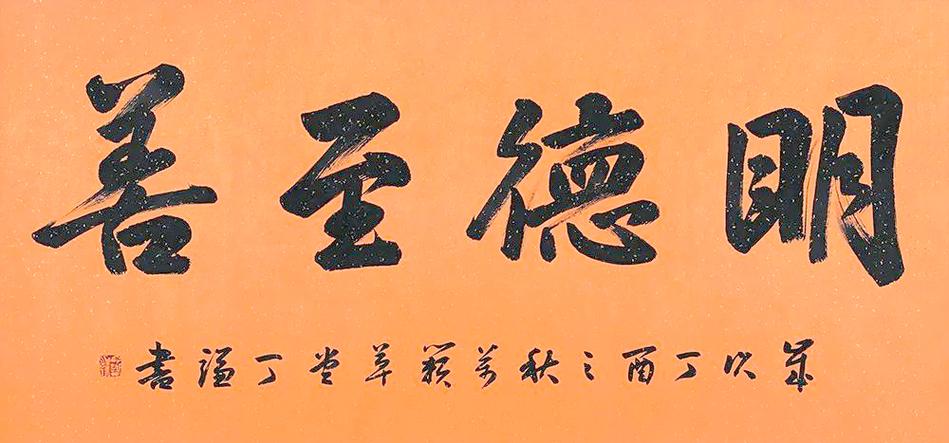 明德至善
岁次丁酉之秋万籁草堂丁谧书